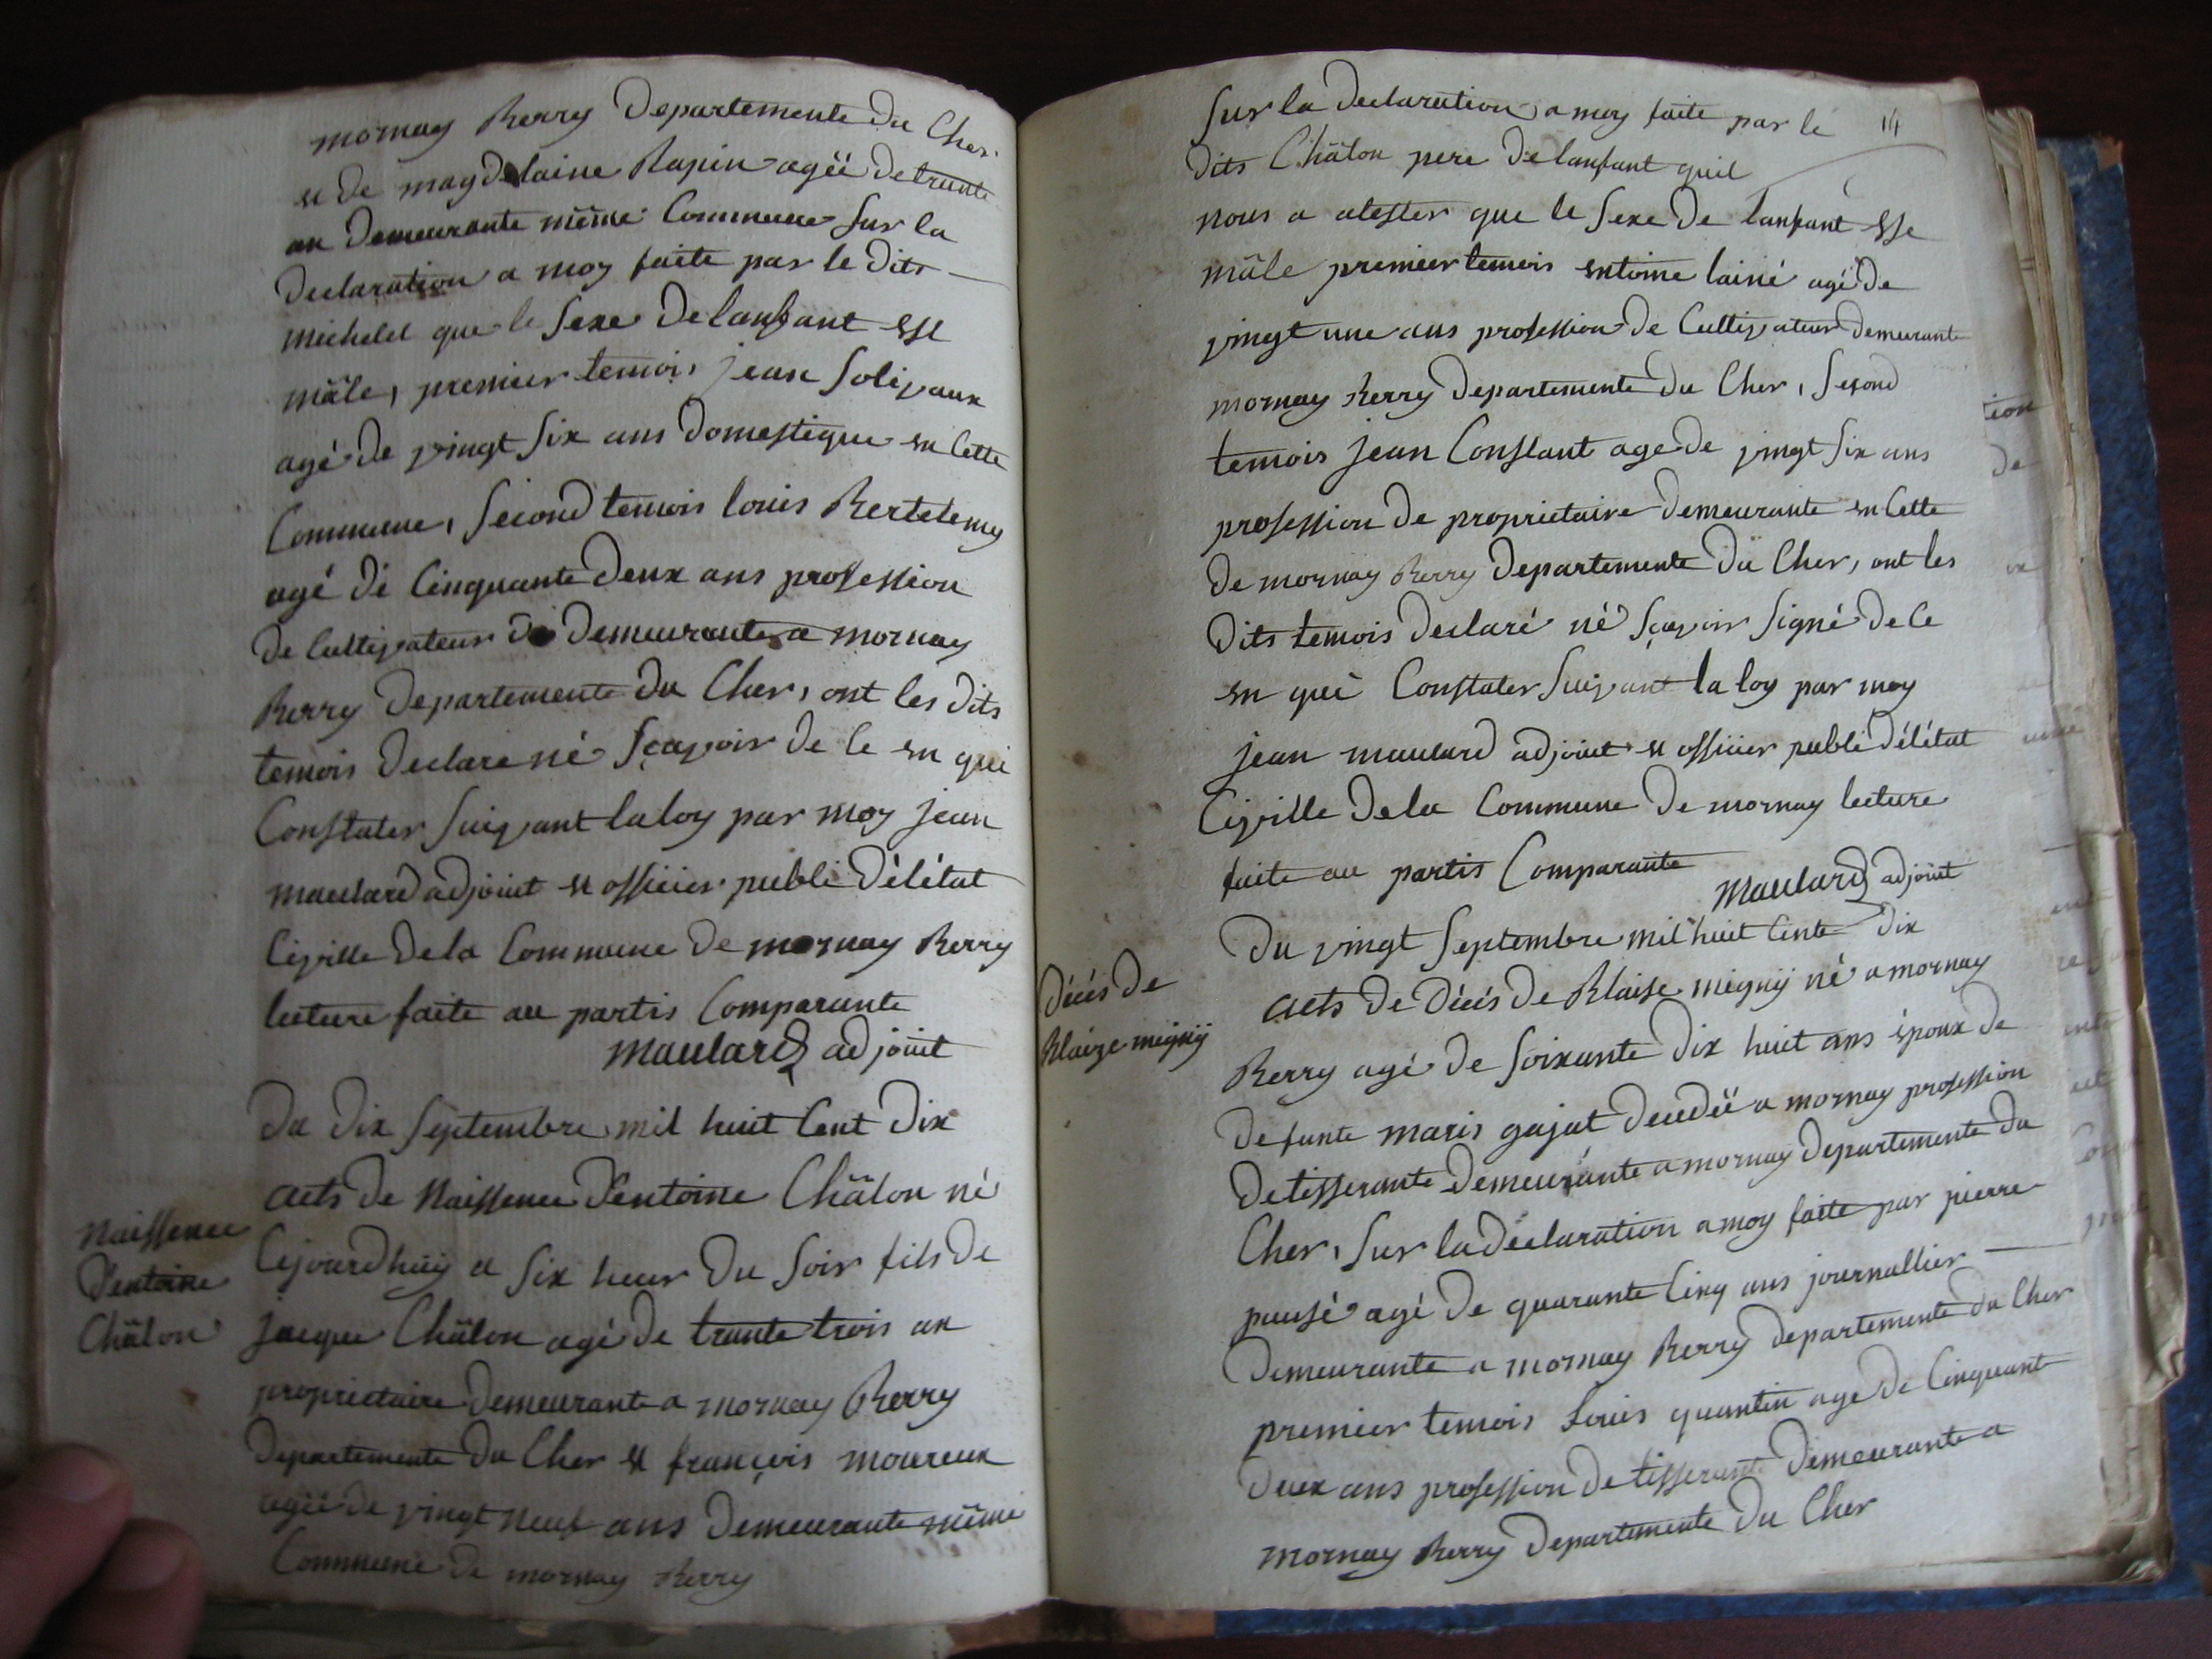 mornay Berry Departemente Du Cher
et De magdelaine Rapin agëé De trante
an Demeurante même Commune Sur la
Declaration a moy faite par le Dits
michelet que le Sexe De lanfant Est
mâle, premier temois jean Solivaux
agé De vingt Six ans Domestique en Cette
Commune, Second temois louis Bertelemy
agé De Cinquante Deux ans profession
De Cultivateur De Demeurante a mornay
Berry Departemente Du Cher, ont les Dits
temois Declare né Sçavoir De Ce en qui
Constater Suivant la loy par moy jean
maulard adjoint et officier publi D'élétat
Civille De la Commune De mornay Berry
lecture faite au partis Comparante
maulard adjoint
Du Dix Septembre mil huit Cent Dix
acts De Naissence D'entoine Châlon né
Naissence
D'entoine
Châlon
Cejourdhuy a Six heur Du Soir fils De
jacque Châlon agé De trante trois an
proprietaire Demeurante a mornay Berry
Departemente Du Cher et françois moureux
agëé De vingt Neuf ans Demeurante même
Commune De mornay Berry
14
Sur la Declaration a moy faite par le
Dits Châlon pere De lanfant quil
nous a atester que le Sexe De lanfant Est
mâle premier temois entoine lainé agé De
vingt une ans profession De Cultivateur Demeurante
mornay Berry Departemente Du Cher, Segond
temois jean Constant age De vingt Six ans
profession De proprietaire Demeurante en Cette
De mornay Berry Departemente Du Cher, ont les
Dits temois Declaré né Sçavoir Signé De Ce
en qui Constater Suivant la loy par moy
jean maulard adjoint et officier publi D'élétat
Civille De la Commune De mornay lecture
faite au partis Comparante
maulard adjoint
Du vingt Septembre mil huit Cente Dix
Décés De
Blaize migny
acts De Décés De Blaise migny né a mornay
Berry agé De Soixante Dix huit ans époux De
Defunte maris gajat Decedëé a mornay profession
De tisserante Demeurante a mornay Departemente Du
Cher, Sur la Declaration a moy faite par pierre
pausé agé De quarante Cinq ans journallier
Demeurante a mornay Berry Departemente Du Cher
premier temois Louis quantin age De Cinquant
Deux ans profession De tisserant Demeurante a
mornay Berry Departemente Du Cher